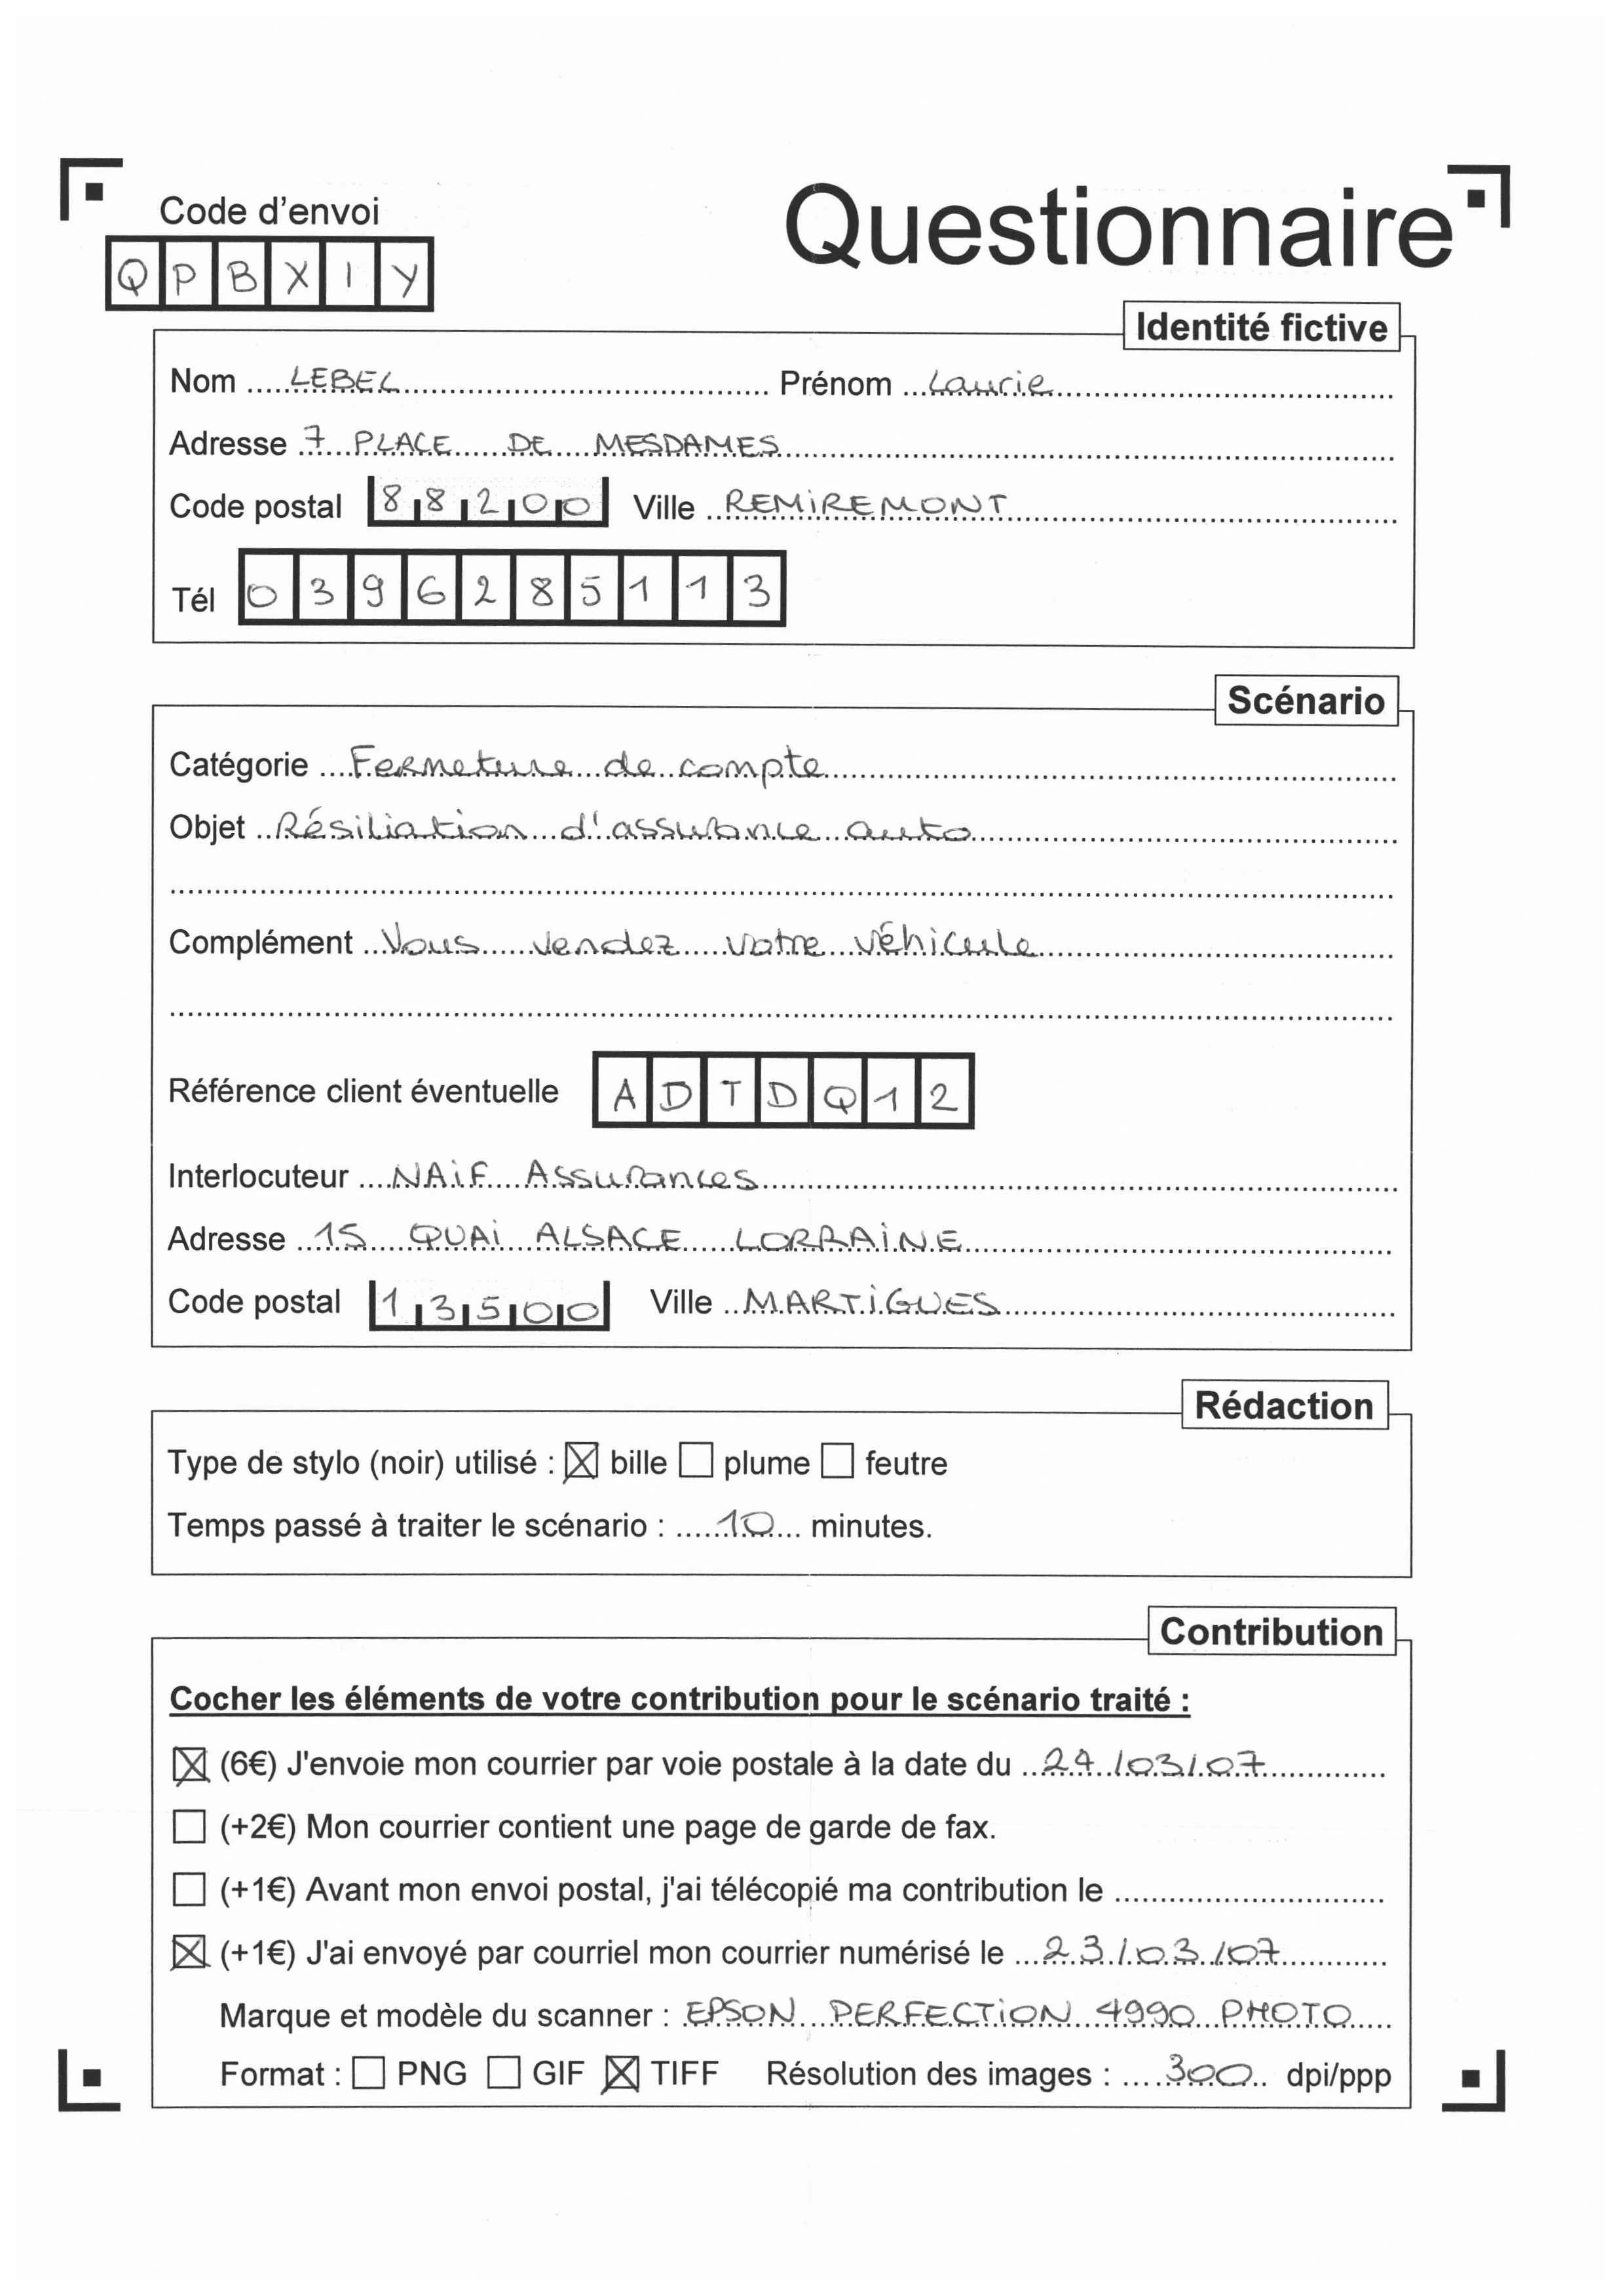 Questionnaire
Code d'envoi
QPBXIY
Identité fictive
Nom LEBEL Prénom Laurie
Adresse 7 PLACE DE MESDAMES
Code postal 88200 Ville REMIREMONT
Tél 0396285113
Scénario
Catégorie Fermeture de compte
Objet Résiliation d'assurance auto
Complément Vous vendez votre véhicule
Référence client éventuelle ADTDQ12
Interlocuteur NAIF Assurances
Adresse 15 QUAI ALSACE LORRAINE
Code postal 13500 Ville MARTIGUES
Rédaction
Type de stylo (noir) utilisé : ☒ bille ☐ plume ☐ feutre
Temps passé à traiter le scénario : 10 minutes.
Contribution
Cocher les éléments de votre contribution pour le scénario traité :
☒ (6€) J'envoie mon courrier par voie postale à la date du 24/03/07
☐ (+2€) Mon courrier contient une page de garde de fax.
☐ (+1€) Avant mon envoi postal, j'ai télécopié ma contribution le
☒ (+1€) J'ai envoyé par courriel mon courrier numérisé le 23/03/07
Marque et modèle du scanner : EPSON PERFECTION 4990 PHOTO
Format : ☐ PNG ☐ GIF ☒ TIFF Résolution des images : 300 dpi/ppp